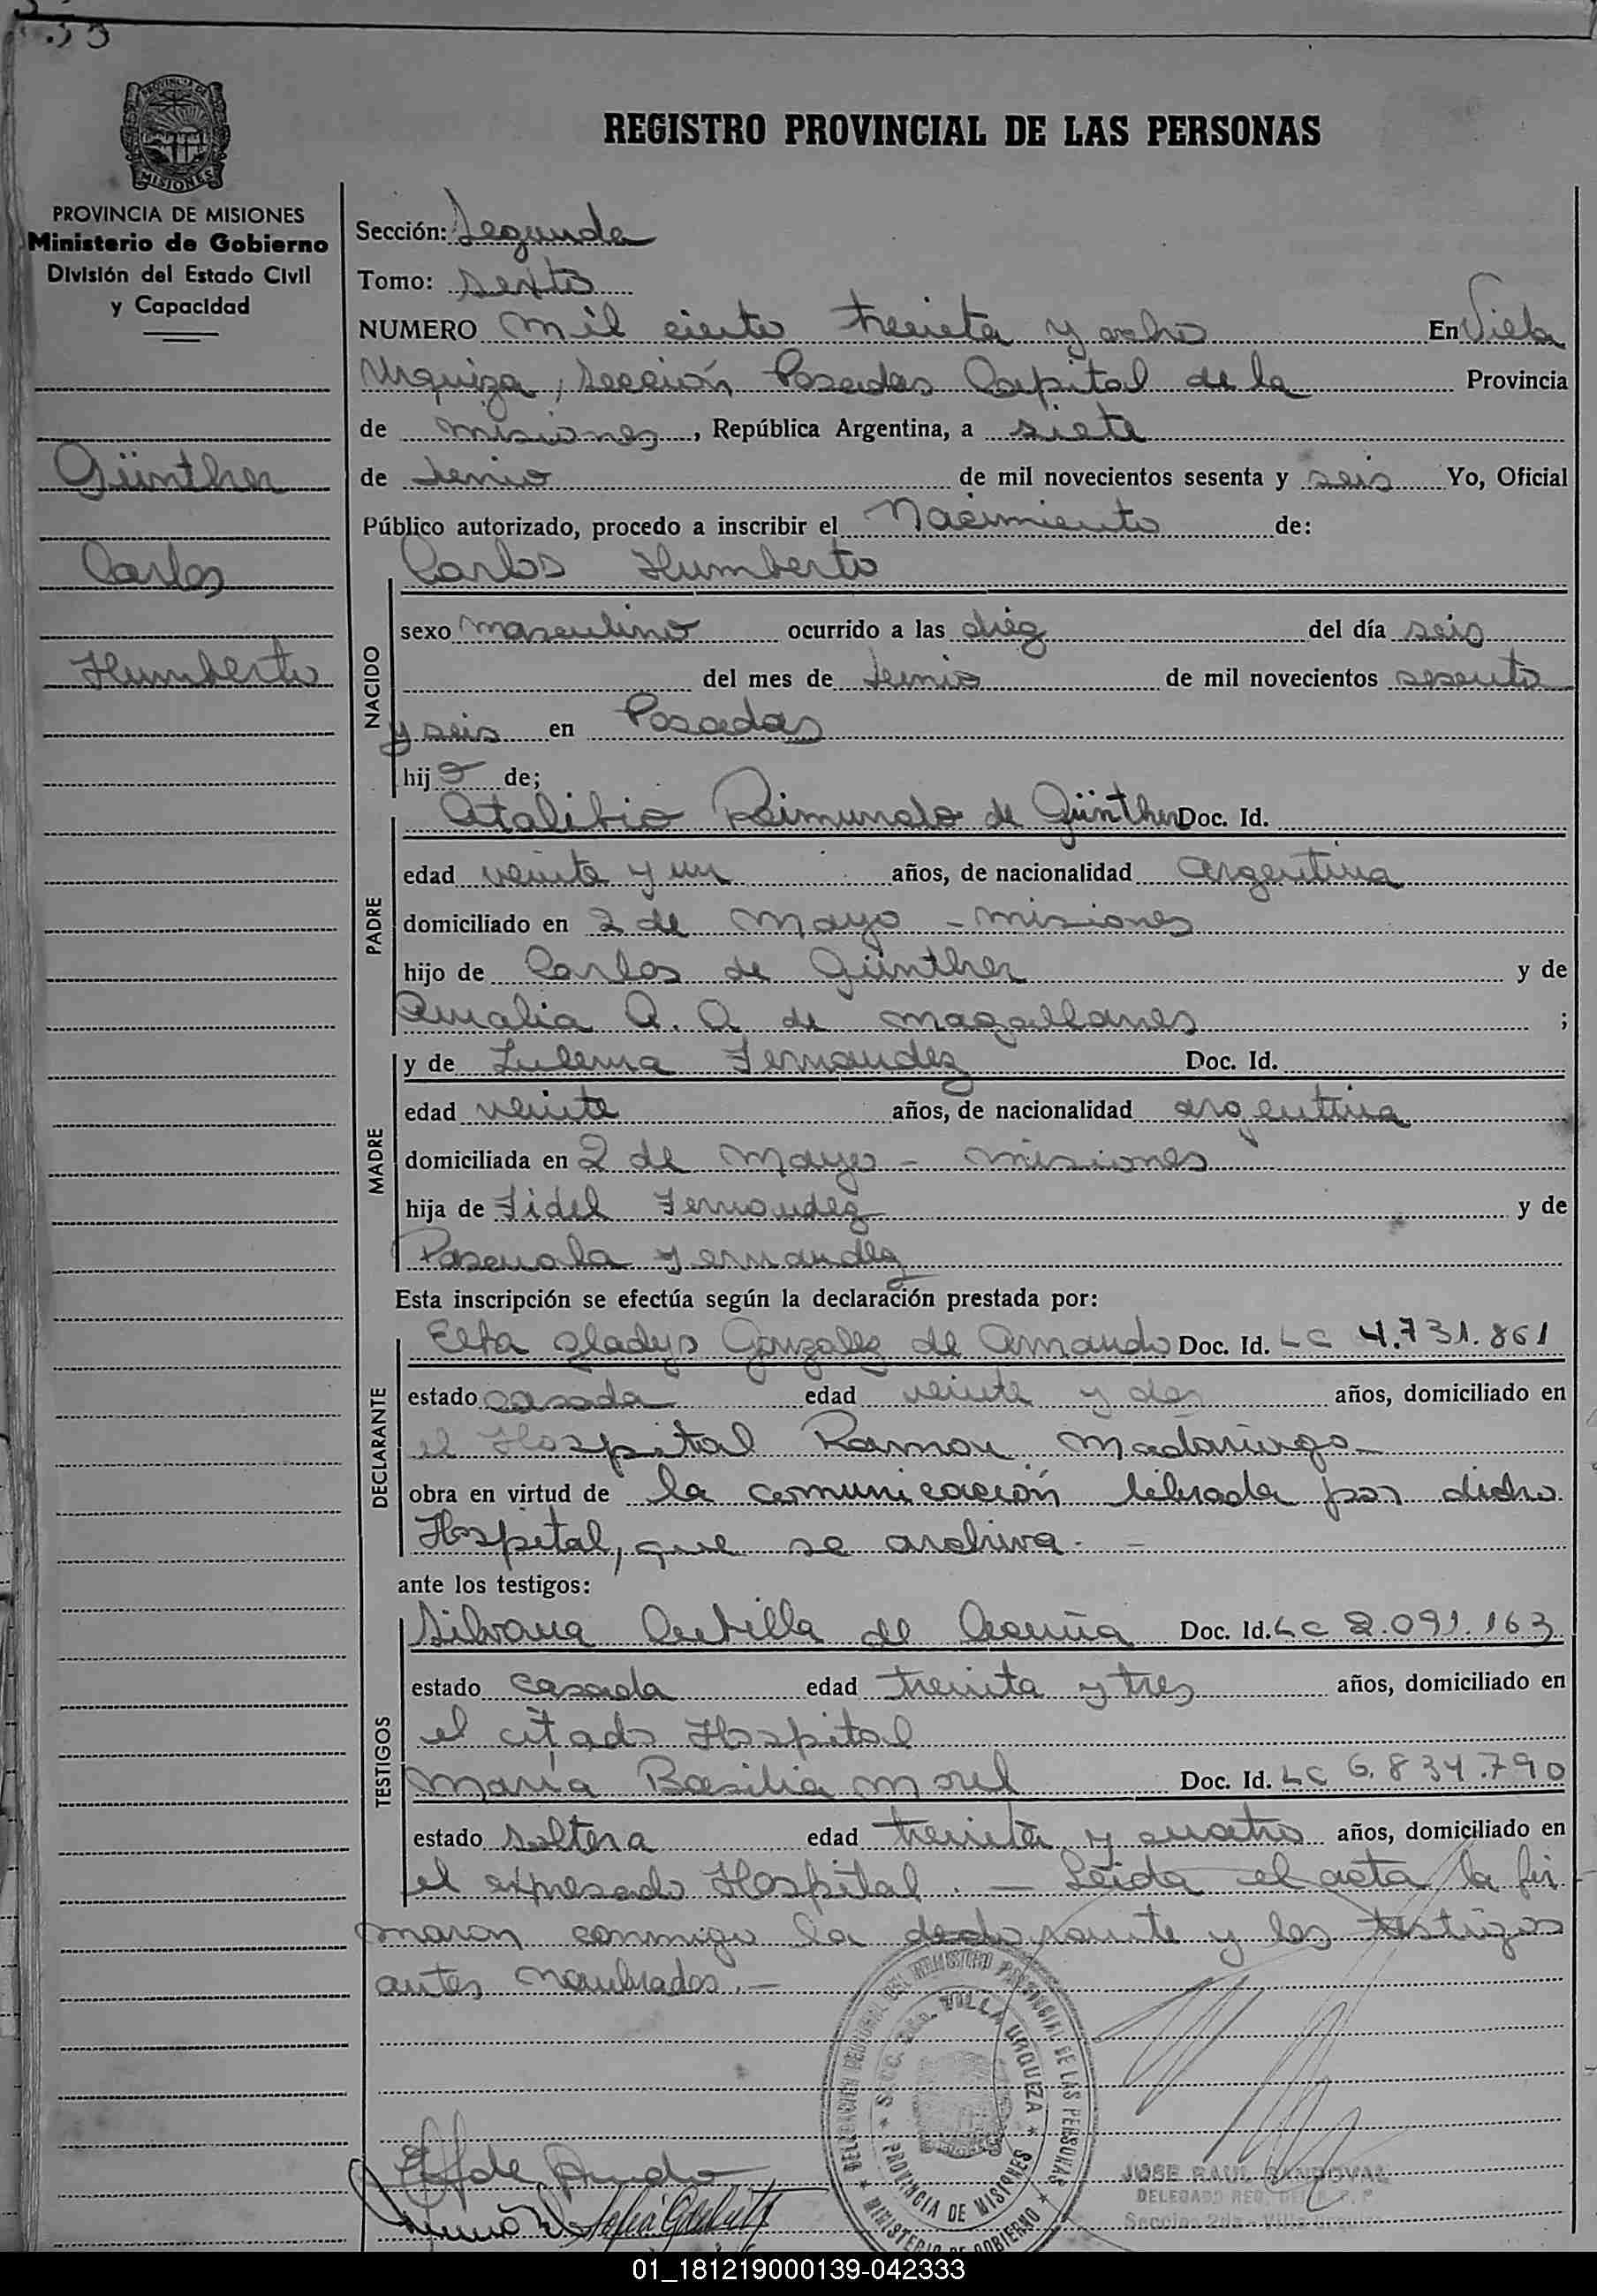 REGISTRO PROVINCIAL DE LAS PERSONAS
PROVINCIA DE
MISIONES
PROVINCIA DE MISIONES
Ministerio de Gobierno
División del Estado Civil
y Capacidad
Günther
Carlos
Humberto
Sección: Segunda
Tomo: Sexto
NUMERO mil ciento treinta y ocho En Villa
Urquiza, Sección Posadas Capital de la Provincia
de misiones, República Argentina, a siete
de Junio de mil novecientos sesenta y seis Yo, Oficial
Público autorizado, procedo a inscribir el Nacimiento de:
Carlos Humberto
NACIDO
sexo masculino ocurrido a las diez del día seis
del mes de Junio de mil novecientos sesenta
y seis en Posadas
hijo de;
Atalibio Raimundo de Günther Doc. Id.
PADRE
edad veinte y un años, de nacionalidad argentina
domiciliado en 2 de Mayo - misiones
hijo de Carlos de Günther y de
Amalia A. A. de magallanes ;
y de Zulema Fernandez Doc. Id.
MADRE
edad veinte años, de nacionalidad argentina
domiciliada en 2 de Mayo - misiones
hija de Fidel Fernandez y de
Pascuala Fernandez
Esta inscripción se efectúa según la declaración prestada por:
Elba Gladys Gonzalez de Amando Doc. Id. LC 4.731.861
DECLARANTE
estado casada edad veinte y dos años, domiciliado en
el Hospital Ramon Madariaga
obra en virtud de la comunicación librada por dicho
Hospital, que se archiva. -
ante los testigos:
Silvana de Acuña Doc. Id. LC 2.091.163
TESTIGOS
estado casada edad treinta y tres años, domiciliado en
el citado Hospital
María Basilia Morel Doc. Id. LC 6.834.790
estado soltera edad treinta y cuatro años, domiciliado en
el expresado Hospital. — Leída el acta la fir
maron conmigo la declarante y los testigos
antes nombrados. —
DEL REGISTRO PROVINCIAL DE LAS PERSONAS
SECC. 2da. VILLA URQUIZA
PROVINCIA DE MISIONES
MINISTERIO DE GOBIERNO
JOSE RAUL SANDOVAL
DELEGADO REG.
Seccion 2da - Villa Urquiza
01_181219000139-042333